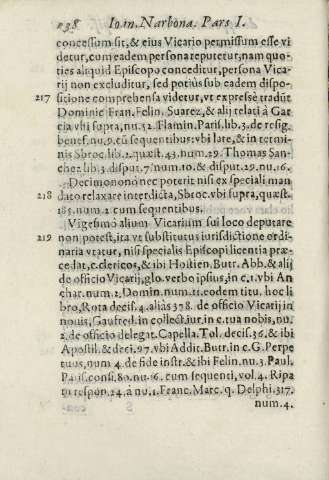 238 Io.in. Narbona. Pars I.
concessum sit, & eius Vicario permissum esse vi
detur, cum eadem persona reputetur, nam quo-
ties aliquid Episcopo conceditur, persona Vica-
rij non excluditur, sed potiùs sub eadem dispo-
217 sitione comprehensa videtur, vt expresse tradūt
Dominic Fran. Felin. Suarez, & alij relati à Gar
cia vbi supra, nu. 52. Flamin. Paris. lib. 3. de resig.
benef. nu. 9. cū sequentibus: vbi late, & in termi-
nis Sbroc. lib. 2. quæst. 43. num. 29. Thomas San-
chez lib. 3. disput. 7. num. 10. & disput. 29. nu. 16.
Decimonono nec poterit nisi ex speciali man
218 dato relaxare interdicta, Sbroc. vbi supra, quæst.
185. num. 2 cum sequentibus.
Vigesimo alium Vicarium sui loco deputare
219 non potest, ita vt substitutus iurisdictione ordi-
naria vtatur, nisi specialis Episcopi licentia præ-
cedat, c. clericos, & ibi Hostien. Butr. Abb. & alij
de officio Vicarij, glo. verbo ipsius, in c. 1. vbi An
char. num. 2. Domin. num. 11. eodem titu. hoc li
bro, Rota decis. 4. aliàs 378. de officio Vicarij in
nouis, Gaufred. in collect. iur. in c. tua nobis, nu.
2. de officio delegat. Capella. Tol. decis. 36. & ibi
Apostil. & deci. 97. vbi Addit. Butr. in c. G. Perpe
tuus, num. 4. de fide instr. & ibi Felin. nu. 3. Paul.
Paris. consi. 80. nu. 16. cum sequenti, vol. 4. Ripa
tu respon. 24. à nu. 1. Franc. Marc. q. Delphi. 317.
num. 4.